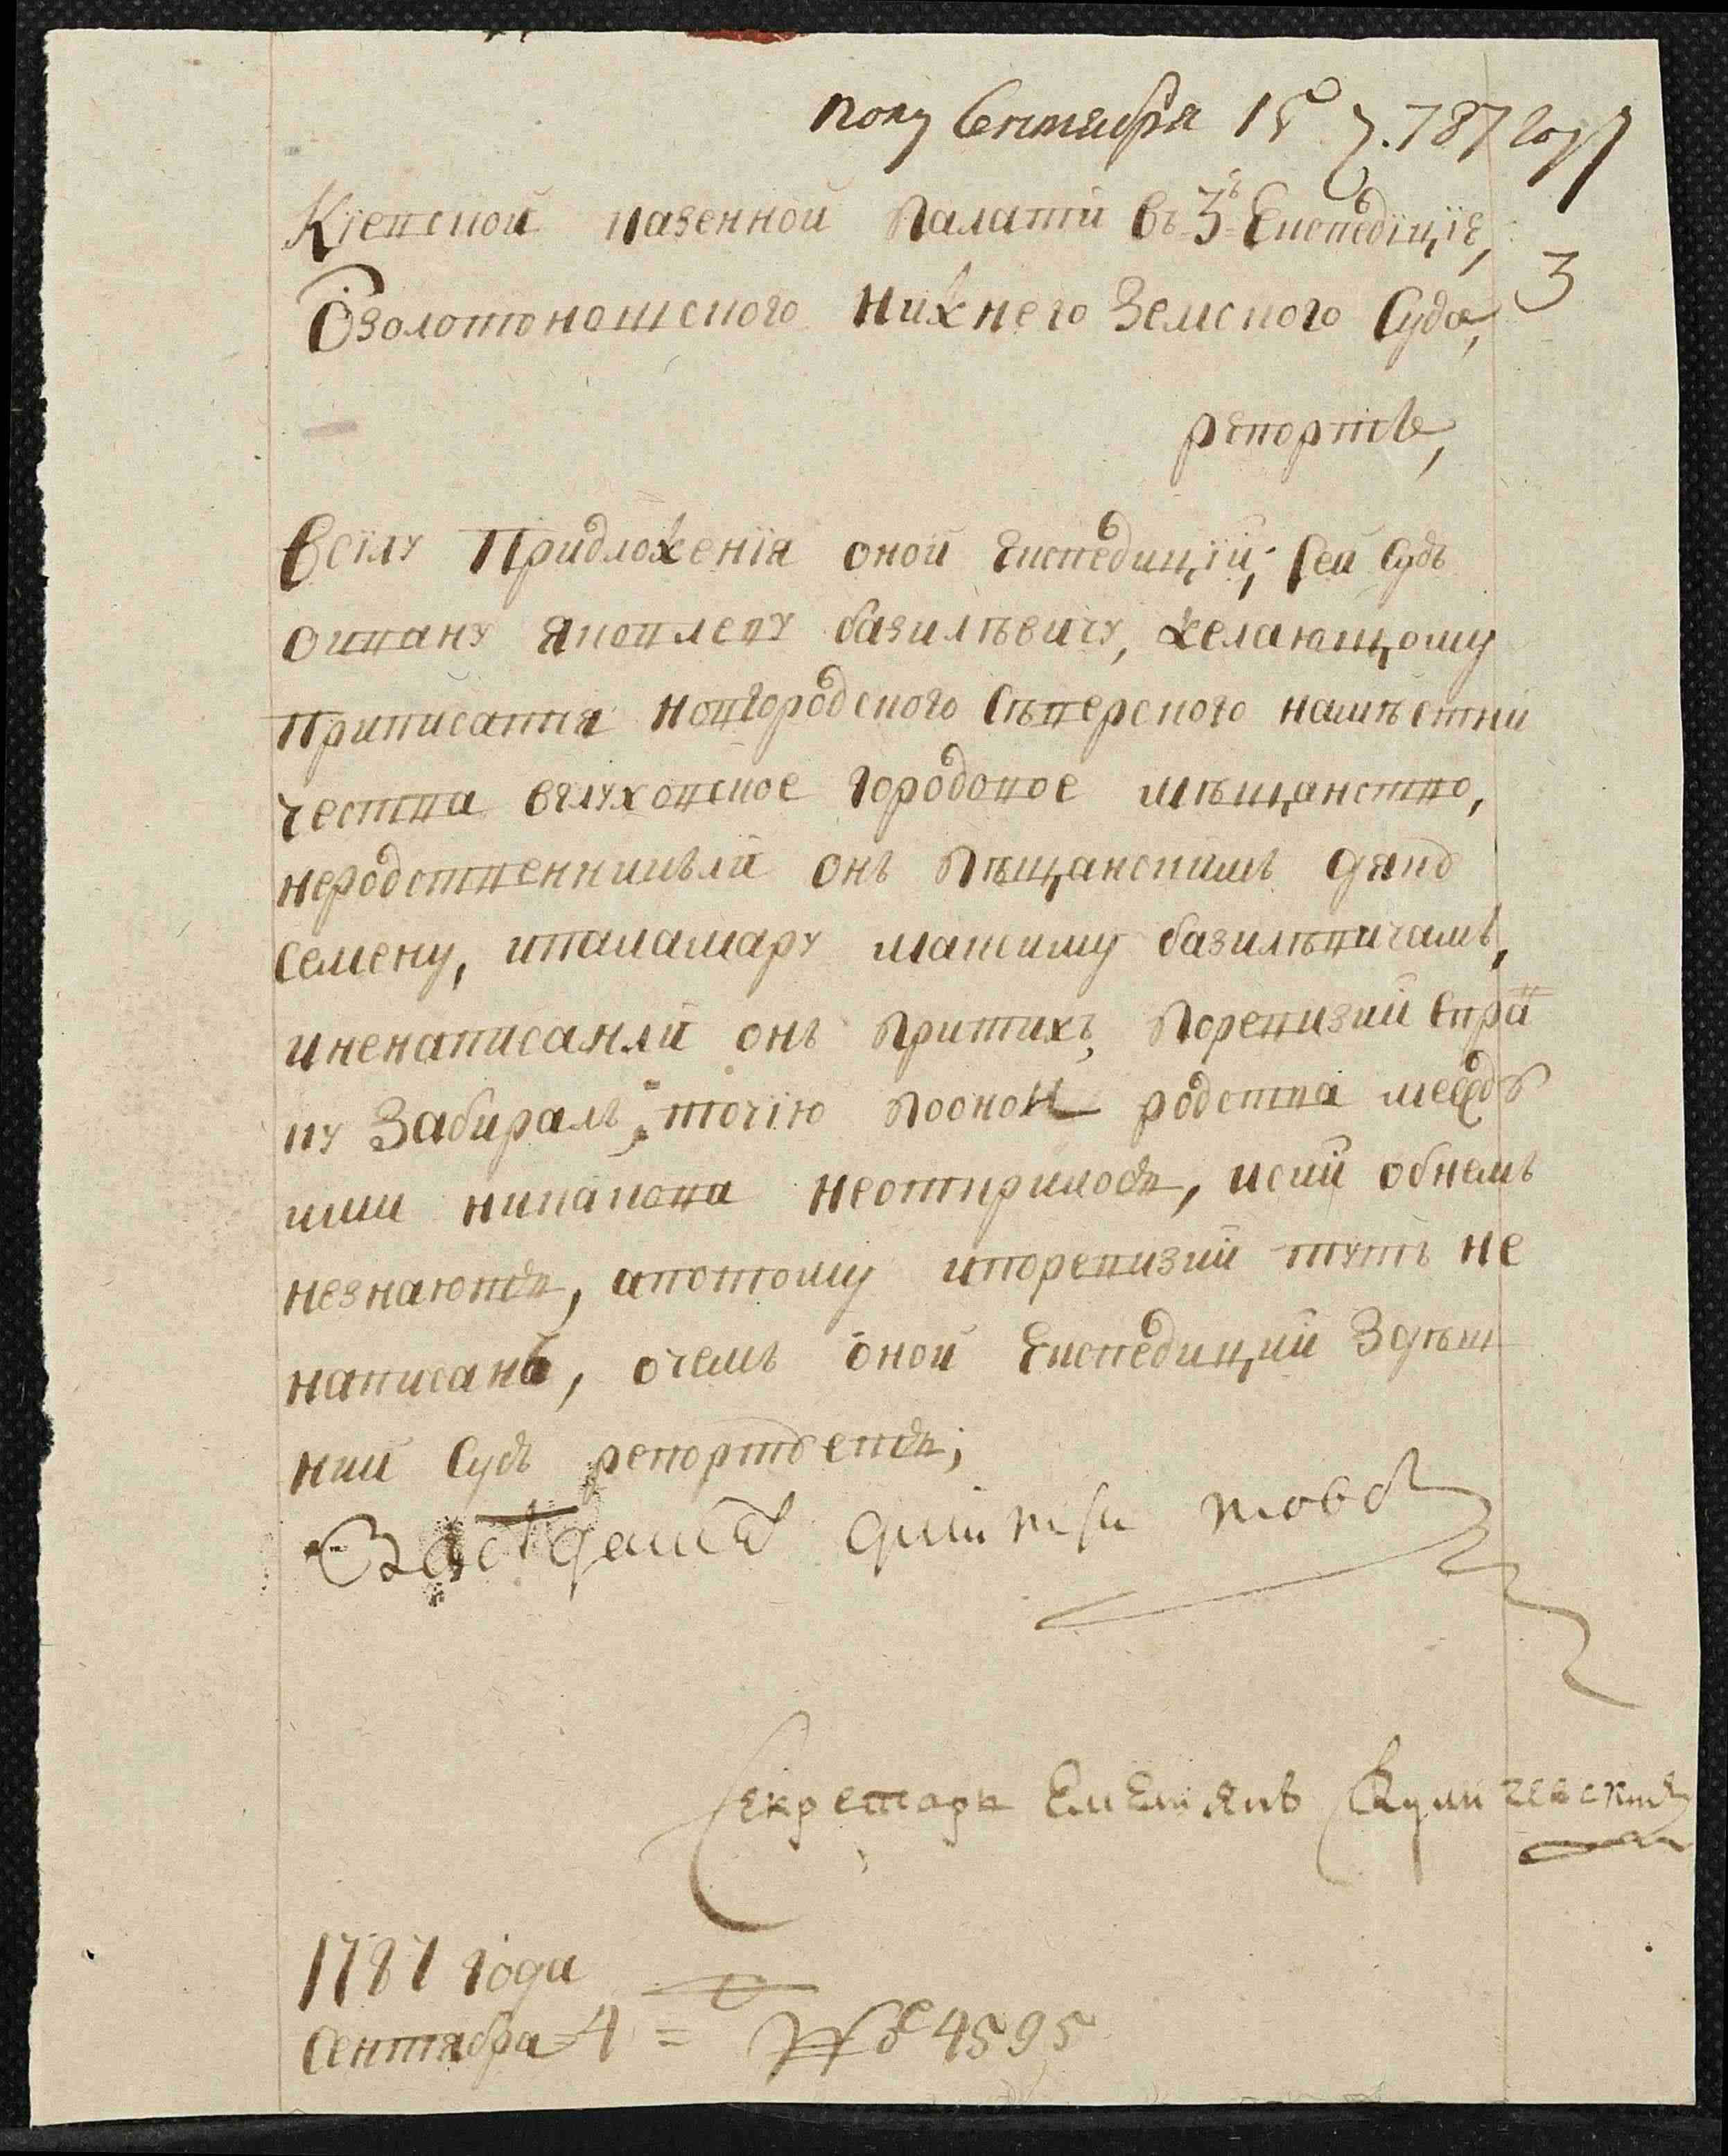 полу Сентября 15 д. 787 году
Киевской казенной палати въ 3ъ Експедицiе,
3
Ѿ золотоношского нижнего Земского Суда,
репортъ,
Всилу Придложенiя оной Експедицiй; Сей Судъ
оипану яковлеву базилѣвичу, желающому
приписатця новгородского Сѣверского намѣстни
чества вглуховское городовое мѣщанство,
неродственникъли онъ Пѣщанскимъ дяку
семену, ипаламару максиму базилѣвичамъ,
иненаписанли онъ притихъ поревизий спра
ку Забиралъ; точiю пооной родства межд
ими никакова неоткрилось, исий обнемъ
незнаютъ, апотому ипоревизий тутъ не
написанъ, очемъ оной Експедиций Здѣш
ний Судъ репортуетъ;
Заседатель дмитри
Секретарь Емельянъ Куличевский
1787 года
Сентября 4 = № 4595